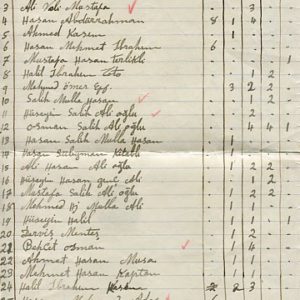 3 Ali Veli Mostafa 3
4 Hasan Abdurrahman 8 1 4
5 Ahmed Kasım 1
6 Hasan Mehmet Ibrahim 6
7 Mustafa Hasan terlikli 1
8 Halil Ibrahim Toto 1 2
9 Mehmed Ömer Eff. 3 2 2
10 Salih Mulla Hasan 1 2
11 Hüseyin Salih Ali oğlu
12 Osman Salih Ali oğlu 4 4 1
13 Hasan Salih Mulla Hasan 1
14 Hasan Süleyman
15 Ali Hasan Ali oğlu 1 2 2
16 Hüseyin Hasan Ali oğlu 1 2
17 Mustafa Salih Ali oğlu 1 2 2
18 Mehmed Hj Mulla Ali 1
19 Hüseyin Halil 1 1
20 Dervis Mentes 1 2
21 Behcet Osman 1 4
22 Ahmat Hasan Musa 1 1
23 Mehmet Hasan Kaptan 1 1
24 Halil Ibrahim 2 2 3